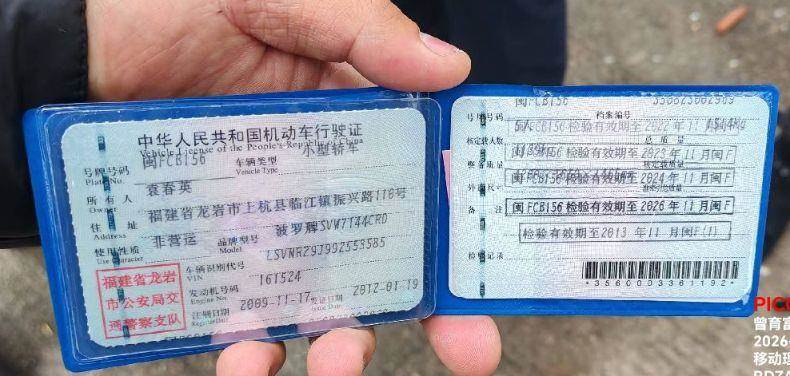 中华人民共和国机动车行驶证
Vehicle License of the People's Republic of China
号牌号码 闽FCB156 车辆类型 小型轿车
Plate No. Vehicle Type
所有人 袁春英
Owner
住址 福建省龙岩市上杭县临江镇振兴路118号
Address
使用性质 非营运 品牌型号 波罗牌SVW7144CRD
Use Character Model
车辆识别代号 LSVNR29J992553585
VIN
发动机号码 161524
Engine No.
注册日期 2009-11-17 发证日期 2012-01-19
Register Date
福建省龙岩
市公安局交
通警察支队
闽FCB156
号牌号码 档案编号
5人
FCB156检验有效期至2022年11月
核定载人数 总质量
检验有效期至2023年11月闽F
整备质量 核定载质量
FCB156检验有效期至2024年11月闽F
外廓尺寸
备注 闽FCB156检验有效期至2026年11月闽F
检验有效期至2013年11月闽F(1)
检验记录
*3560003361192*
PIC
曾育富
2026
移动现